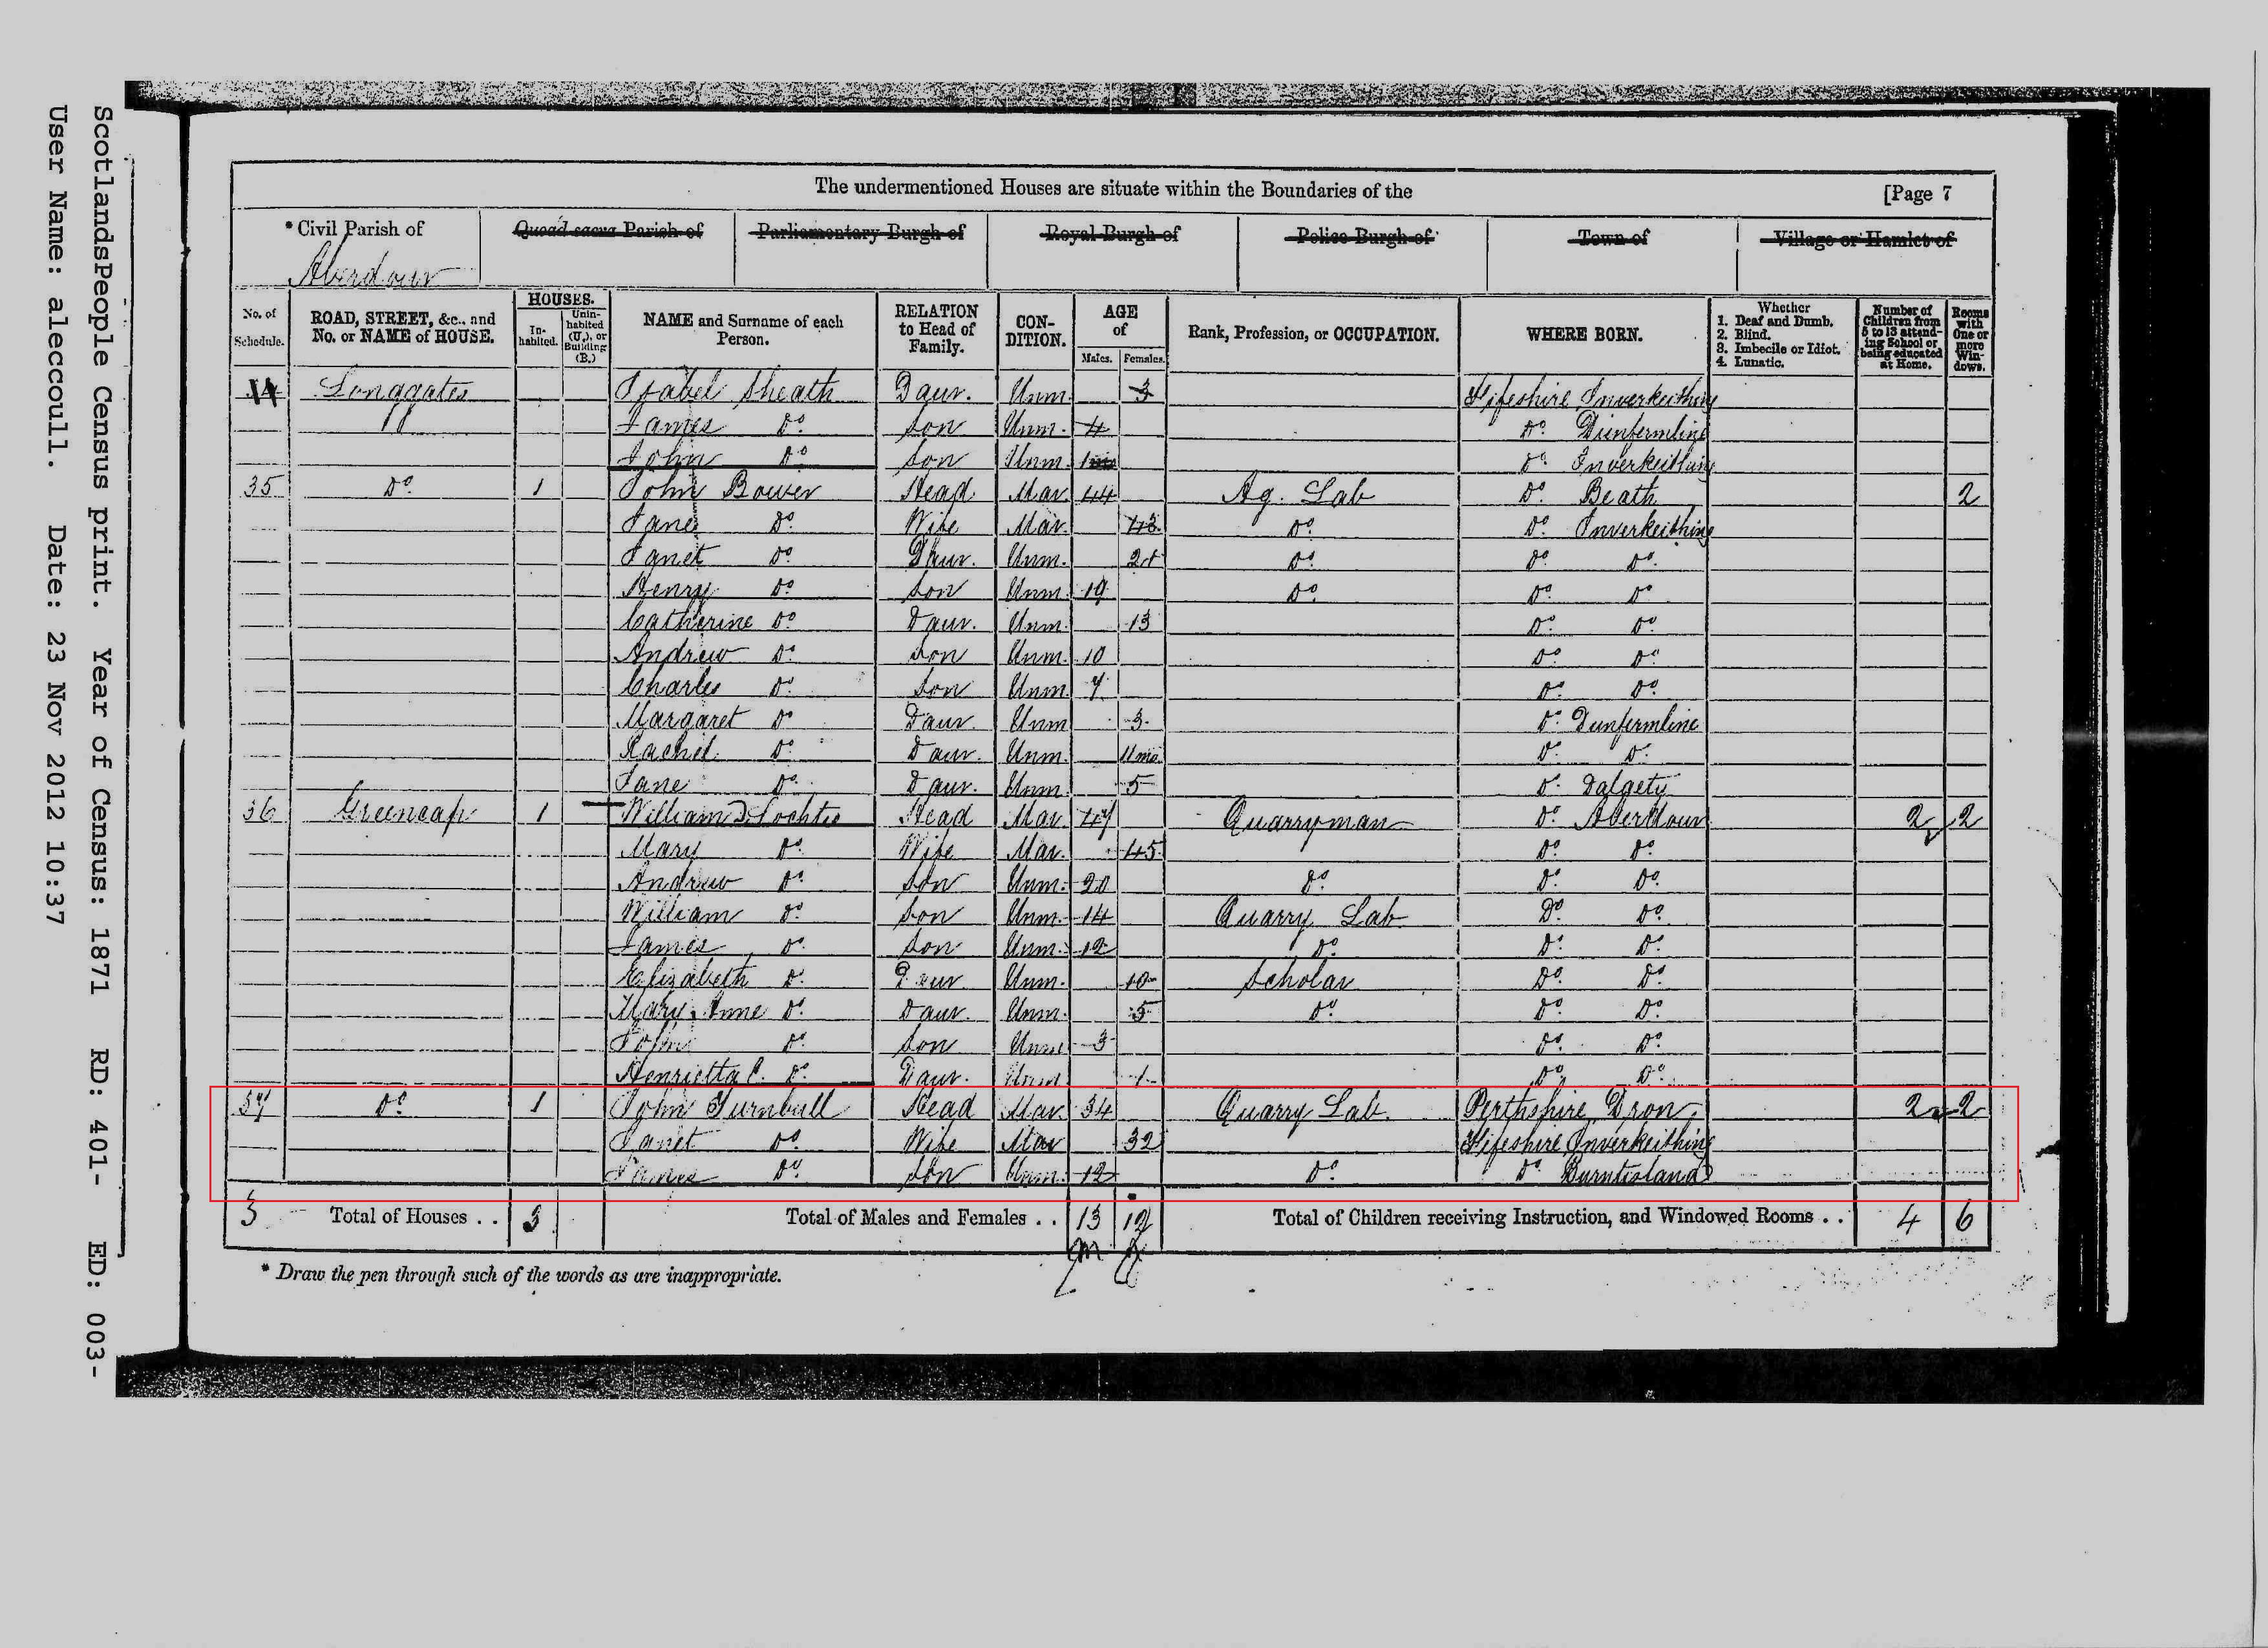 ScotlandsPeople Census print. Year of Census: 1871 RD: 401- ED: 003-
User Name: aleccoull. Date: 23 Nov 2012 10:37
The undermentioned Houses are situate within the Boundaries of the [Page 7
* Civil Parish of Quoad sacra Parish of Parliamentary Burgh of Royal Burgh of Police Burgh of Town of Village or Hamlet of
Aberdour
No. of Schedule. ROAD, STREET, &c., and No. or NAME of HOUSE. HOUSES. In-habited. Unin-habited (U.), or Building (B.) NAME and Surname of each Person. RELATION to Head of Family. CON-DITION. AGE of Males. Females. Rank, Profession, or OCCUPATION. WHERE BORN. Whether 1. Deaf and Dumb. 2. Blind. 3. Imbecile or Idiot. 4. Lunatic. Number of Children from 5 to 13 attend-ing School or being educated at Home. Rooms with One or more Win-dows.
Longgates Isabel Sheath Daur. Unm. 3 Fifeshire Inverkeithing
James Do. Son Unm. 4 Do. Dunfermline
John Do. Son Unm. Do. Inverkeithing
35 Do. 1 John Bower Head Mar. 44 Ag. Lab Do. Beath 2
Jane Do. Wife Mar. 43 Do. Do. Inverkeithing
Janet Do. Daur. Unm. 21 Do. Do. Do.
Henry Do. Son Unm. 19 Do. Do. Do.
Catherine Do. Daur. Unm. 13 Do. Do.
Andrew Do. Son Unm. 10 Do. Do.
Charles Do. Son Unm. 7 Do. Do.
Margaret Do. Daur Unm 3 Do. Dunfermline
Rachel Do. Daur. Unm. 11mo. Do. Do.
Jane Do. Daur. Unm. 5 Do. Dalgety
36 Greencap 1 William D. Lochtie Head Mar. 47 Quarryman Do. Aberdour 2 2
Mary Do. Wife Mar. 45 Do. Do.
Andrew Do. Son Unm. 20 Do. Do. Do.
William Do. Son Unm. 14 Quarry Lab. Do. Do.
James Do. Son Unm. 12 Do. Do. Do.
Elizabeth Do. Daur Unm. 10 Scholar Do. Do.
Mary Anne Do. Daur. Unm. 5 Do. Do. Do.
John Do. Son Unm 3 Do. Do.
Henrietta C. Do. Daur. Unm 1 Do. Do.
37 Do. 1 John Turnbull Head Mar. 34 Quarry Lab. Perthshire Dron. 2 2
Janet Do. Wife Mar 32 Fifeshire Inverkeithing
James Do. Son Unm. 12 Do. Do. Burntisland
3 Total of Houses . . 3 Total of Males and Females . . 13 12 Total of Children receiving Instruction, and Windowed Rooms . . 4 6
* Draw the pen through such of the words as are inappropriate.